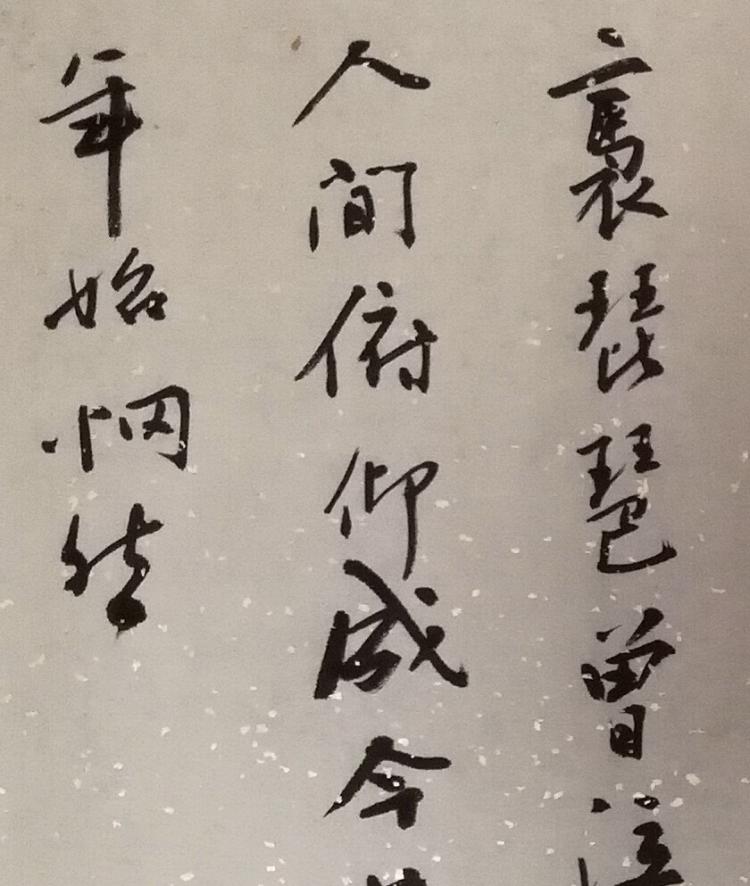 褭琵琶曾
人間俯仰成今
年始惘然